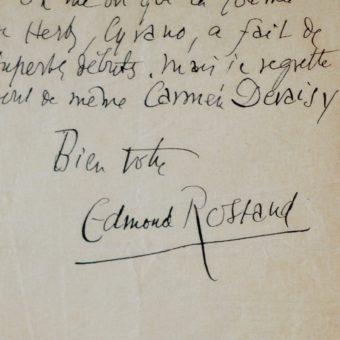 on me dit que la
Herts, Cyrano, a fait de
superbes débuts. Mais je regrette
tout de même Carmen Deraisy
Bien votre
Edmond Rostand